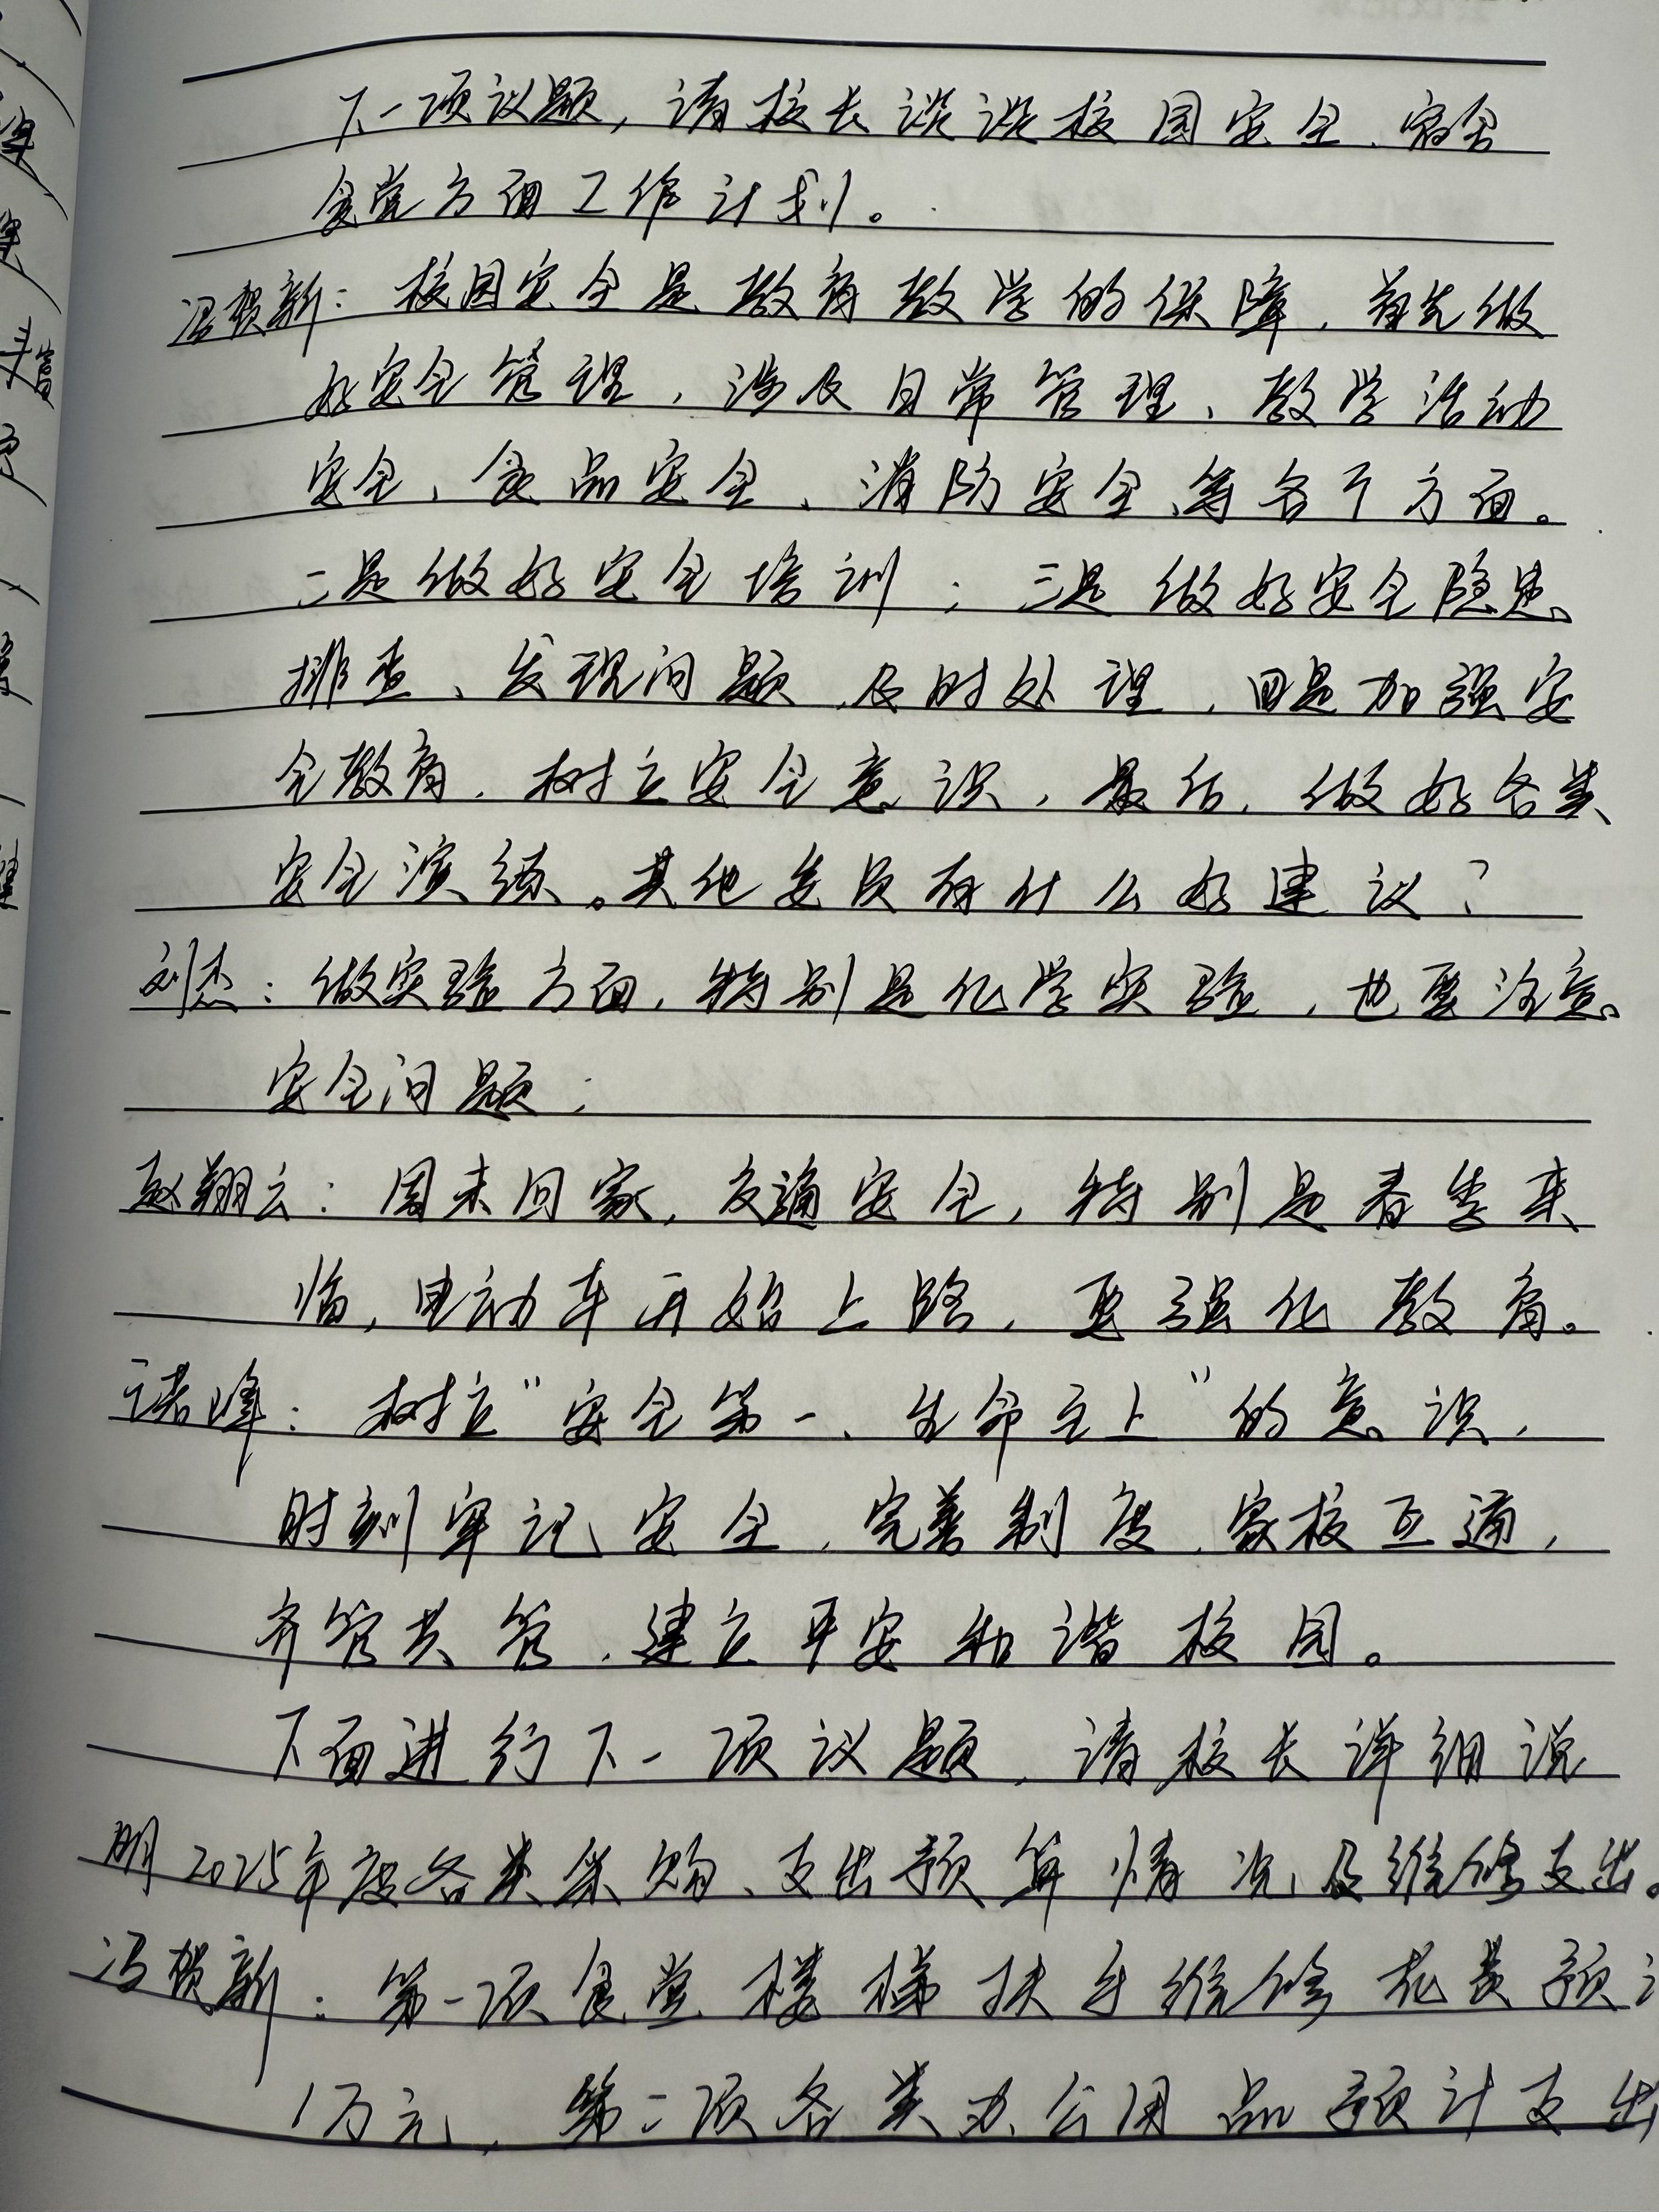 下一项议题，请校长谈谈校园安全、宿舍
食堂方面工作计划。
冯贺新：校园安全是教育教学的保障，首先做
好安全管理，涉及日常管理、教学活动
安全、食品安全、消防安全、等各个方面。
二是做好安全培训；三是做好安全隐患
排查、发现问题及时处理，四是加强安
全教育，树立安全意识，最后，做好各类
安全演练。其他委员有什么好建议？
刘杰：做实验方面，特别是化学实验，也要注意
安全问题；
赵翔云：周末回家，交通安全，特别是春季来
临，电动车开始上路，要强化教育。
峰：树立“安全第一、生命至上”的意识，
时刻牢记安全，完善制度，家校互通，
齐管共管，建立平安和谐校园。
下面进行下一项议题，请校长详细说
明2025年度各类采购、支出预算情况及维修支出。
冯贺新：第一项食堂楼梯扶手维修花费预
1万元，第二项各类办公用品预计支出